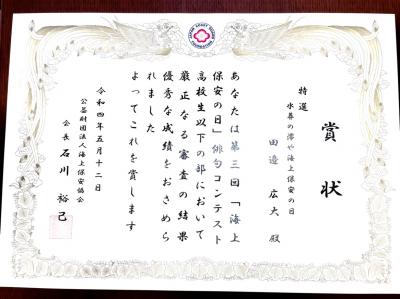 賞状
特選
水葬の澪や海上保安の日
田邉 広大 殿
あなたは第三回「海上
保安の日」俳句コンテスト
高校生以下の部において
厳正なる審査の結果
優秀な成績をおさめら
れました
よってこれを賞します
令和四年五月十二日
公益財団法人海上保安協会
会長 石川 裕己